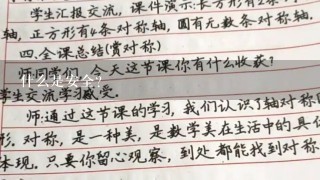 学生汇报交流,课件演示:长方形有2条
轴,正方形有4条对称轴,圆有无数条对称轴.
四.全课总结(赏对称)
师:同学们,今天这节课你有什么收获?
什么是安全?
学生交流学习感受.
师:通过这节课的学习,我们认识了轴对称图
形.对称,是一种美,是数学美在生活中的具
体现.只要你留心观察,到处都能找到对称